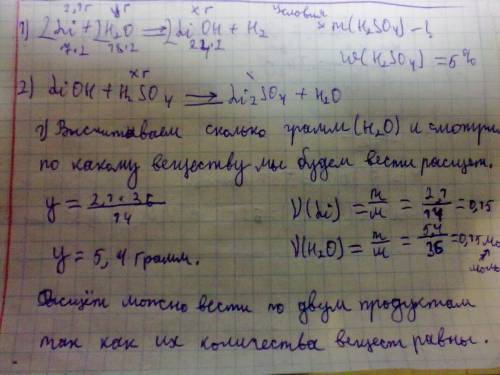 2,1г yг xг Условия
1) 2Li + 2H₂O ⟹ 2LiOH + H₂ m(H₂SO₄) - ?
7·2 18·2 24·2 w(H₂SO₄) = 5%
xг
2) LiOH + H₂SO₄ ⟹ Li₂SO₄ + H₂O
1) Высчитываем сколько грамм (H₂O) и смотрим
по какому веществу мы будем вести расщет.
y = 2,1·36/14 ν(Li) = m/M = 2,1/14 = 0,15
y = 5,4 грамм. ν(H₂O) = m/M = 5,4/36 = 0,15 моль
Расщёт можно вести по двум продуктам
так как их количества веществ равны.